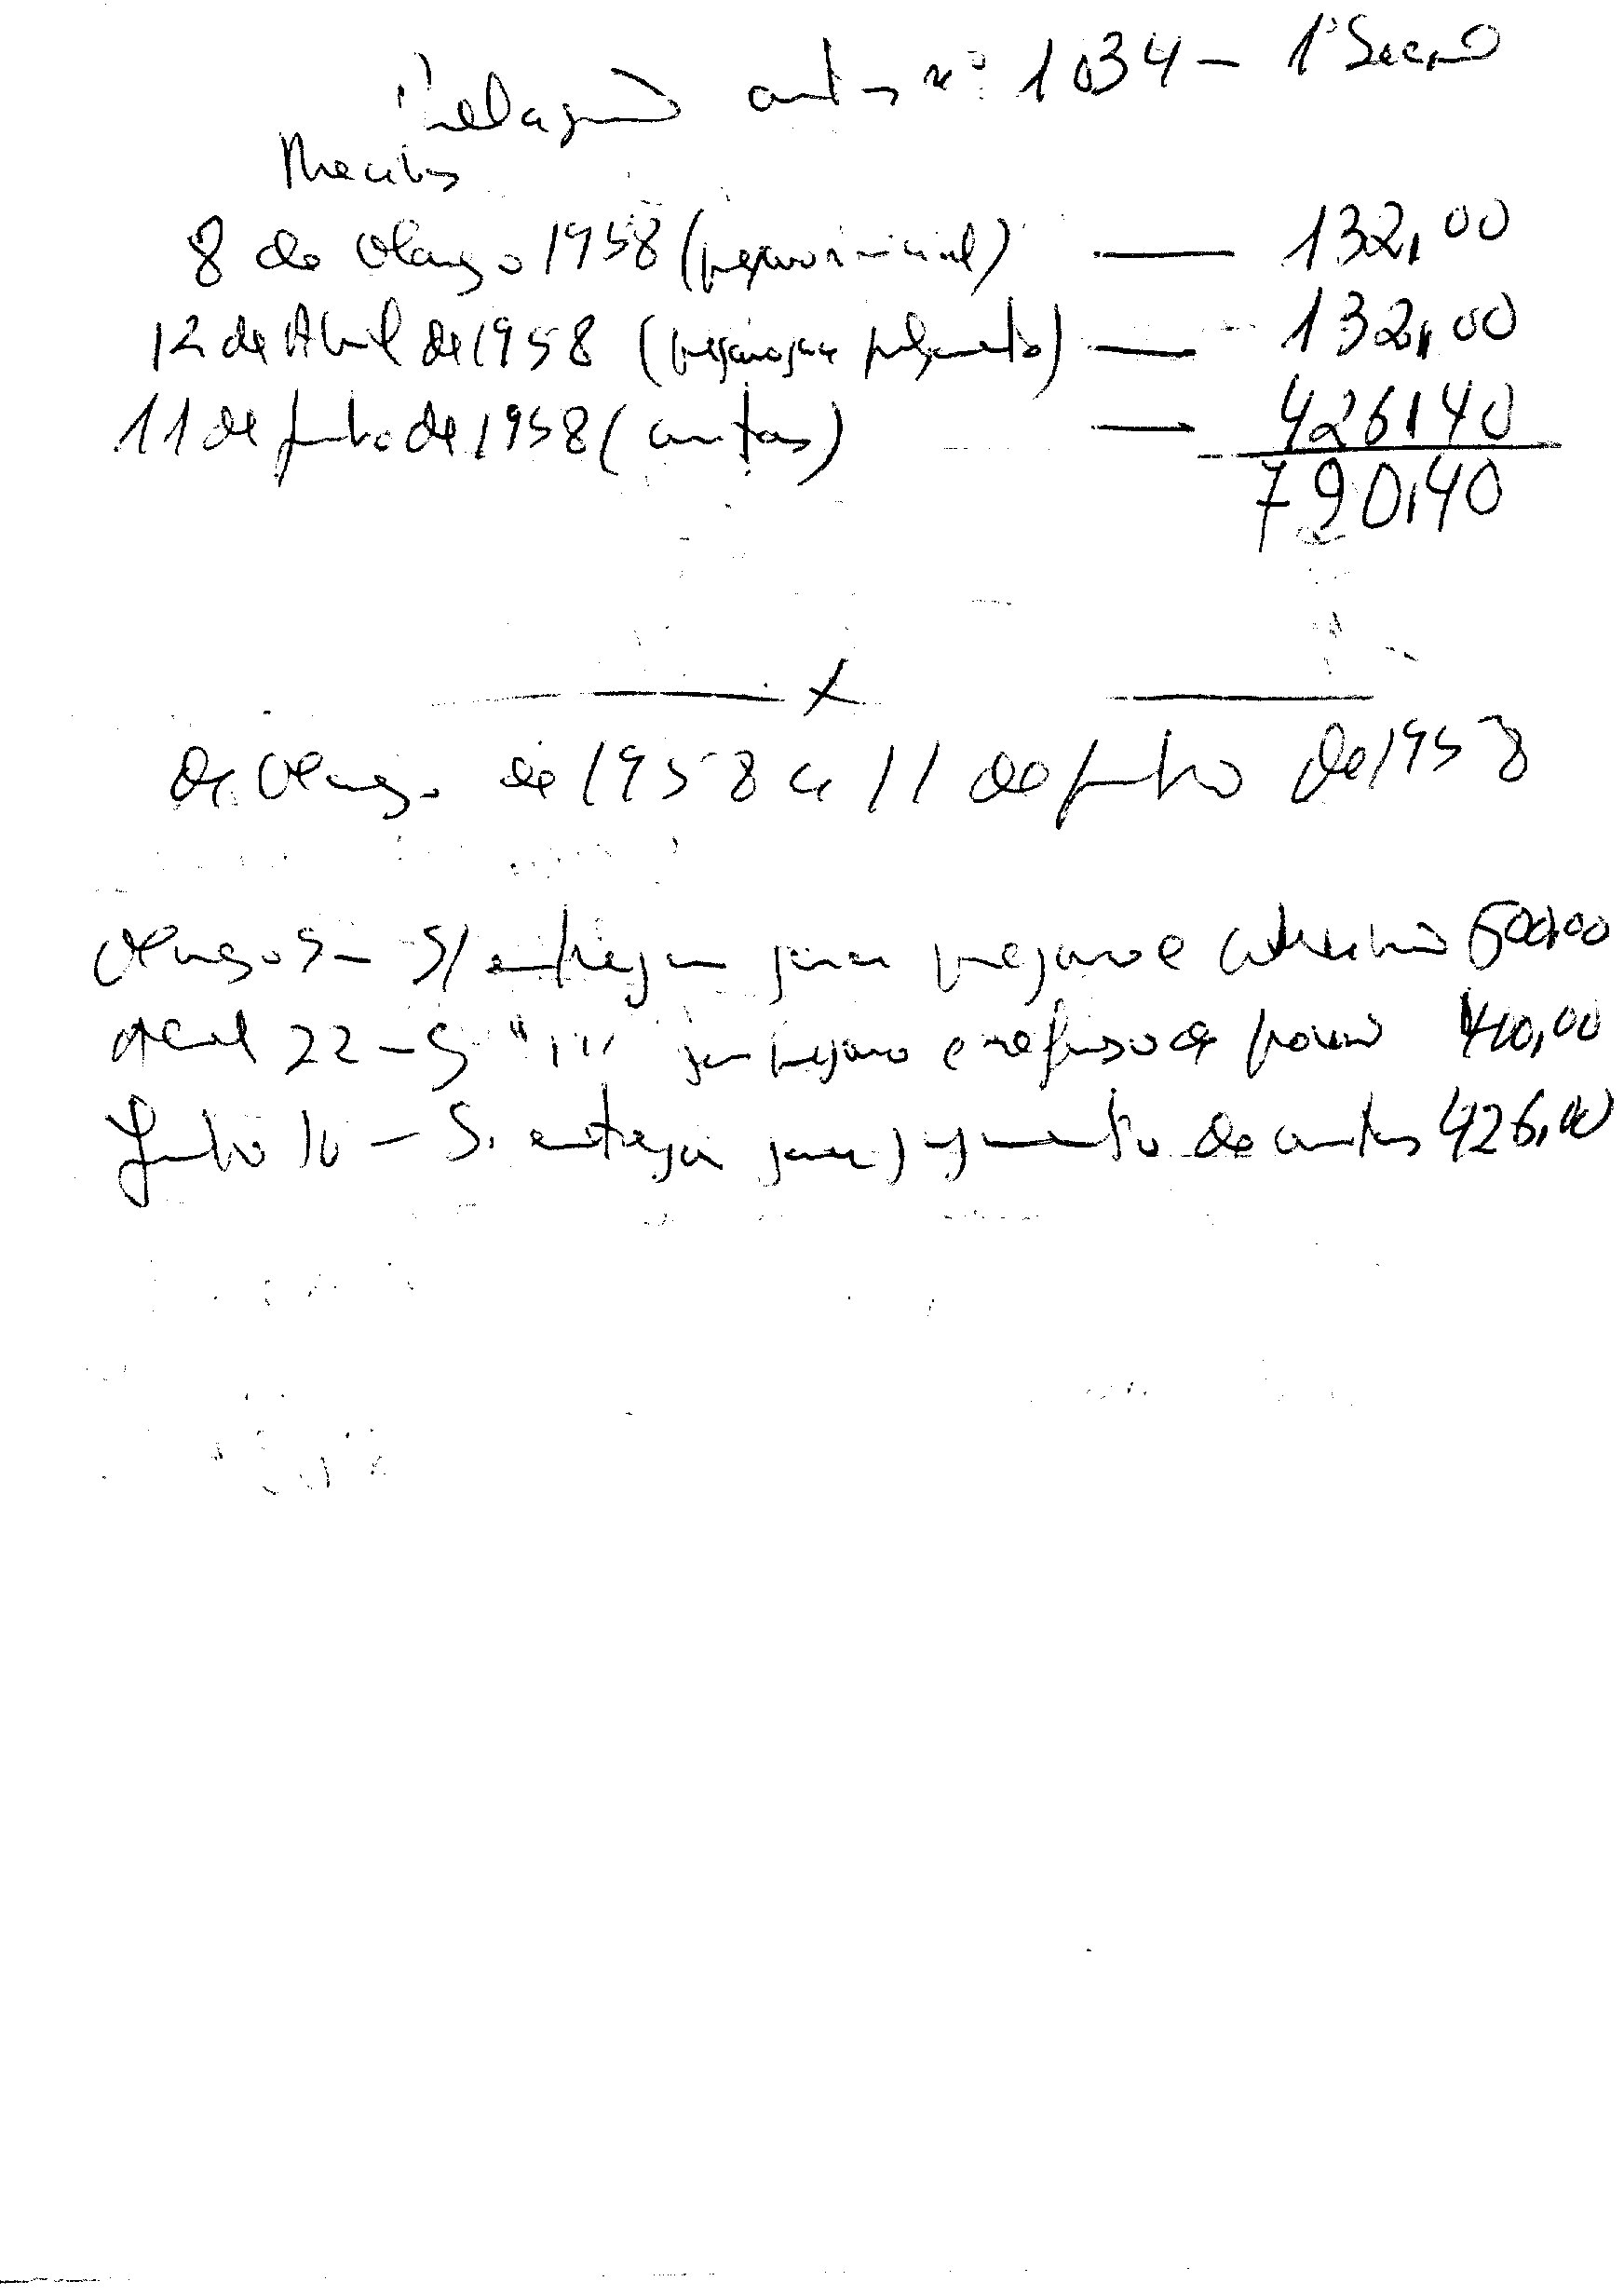 Relação autos nº 1034 - 1ª Secção
Recibos
8 de Março 1958 (preparo inicial) — 132,00
12 de Abril de 1958 (preparo para julgamento) — 132,00
11 de Julho de 1958 (custas) — 426,40
790,40
X
de Março de 1958 a 11 de Julho de 1958
Março 5 - S/ entrega para preparo e 600,00
Abril 22 - S " " " para preparo e 410,00
Julho 10 - S. entrega para pagamento de custas 426,00